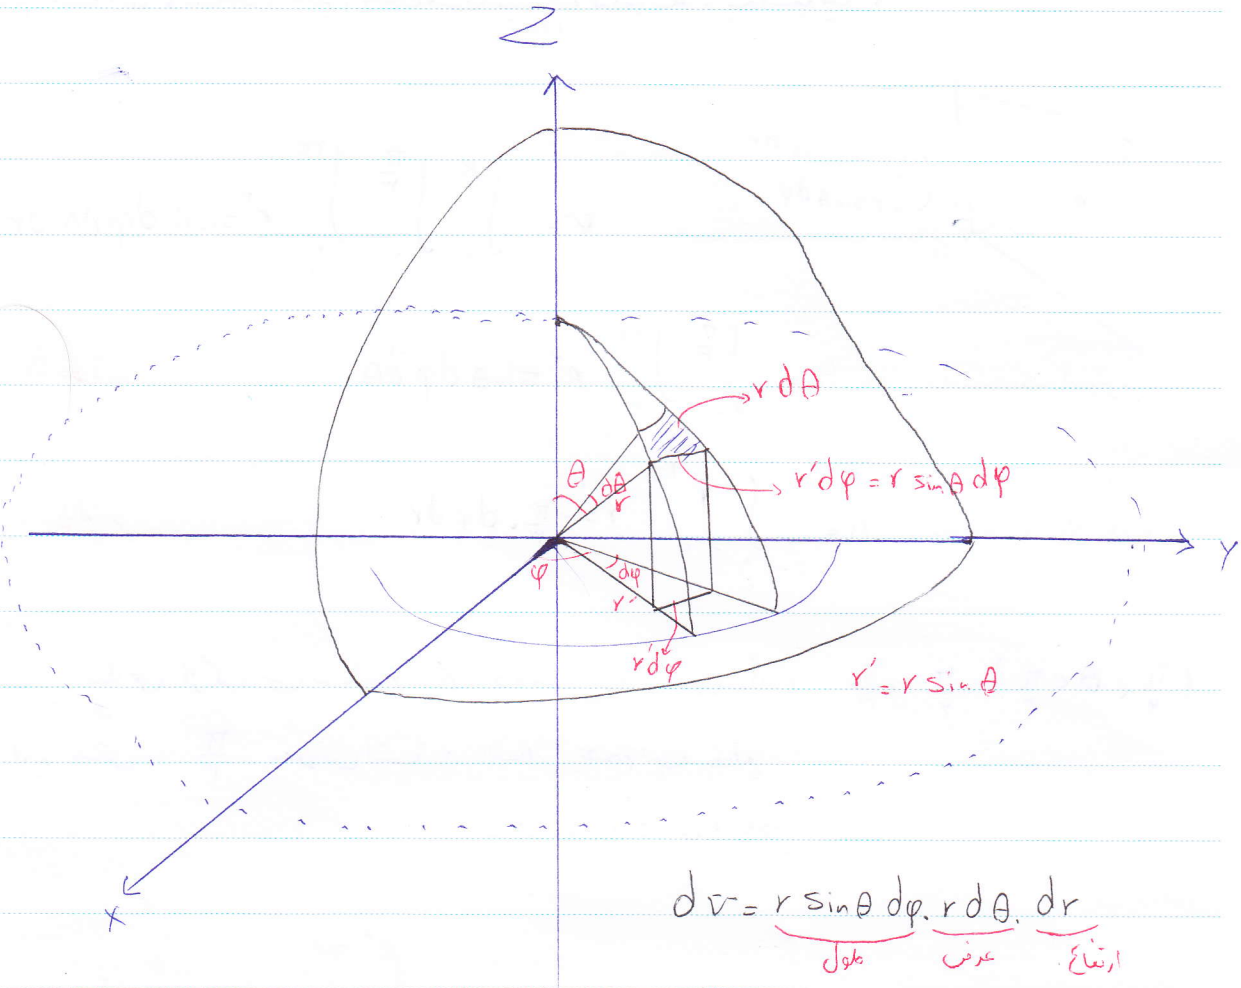 Z
r dθ
θ
dθ
r
r'dφ = r sinθ dφ
Y
φ
dφ
r'
r'dφ
r' = r sinθ
X
dv = r sinθ dφ. r dθ. dr
طول عرض ارتفاع